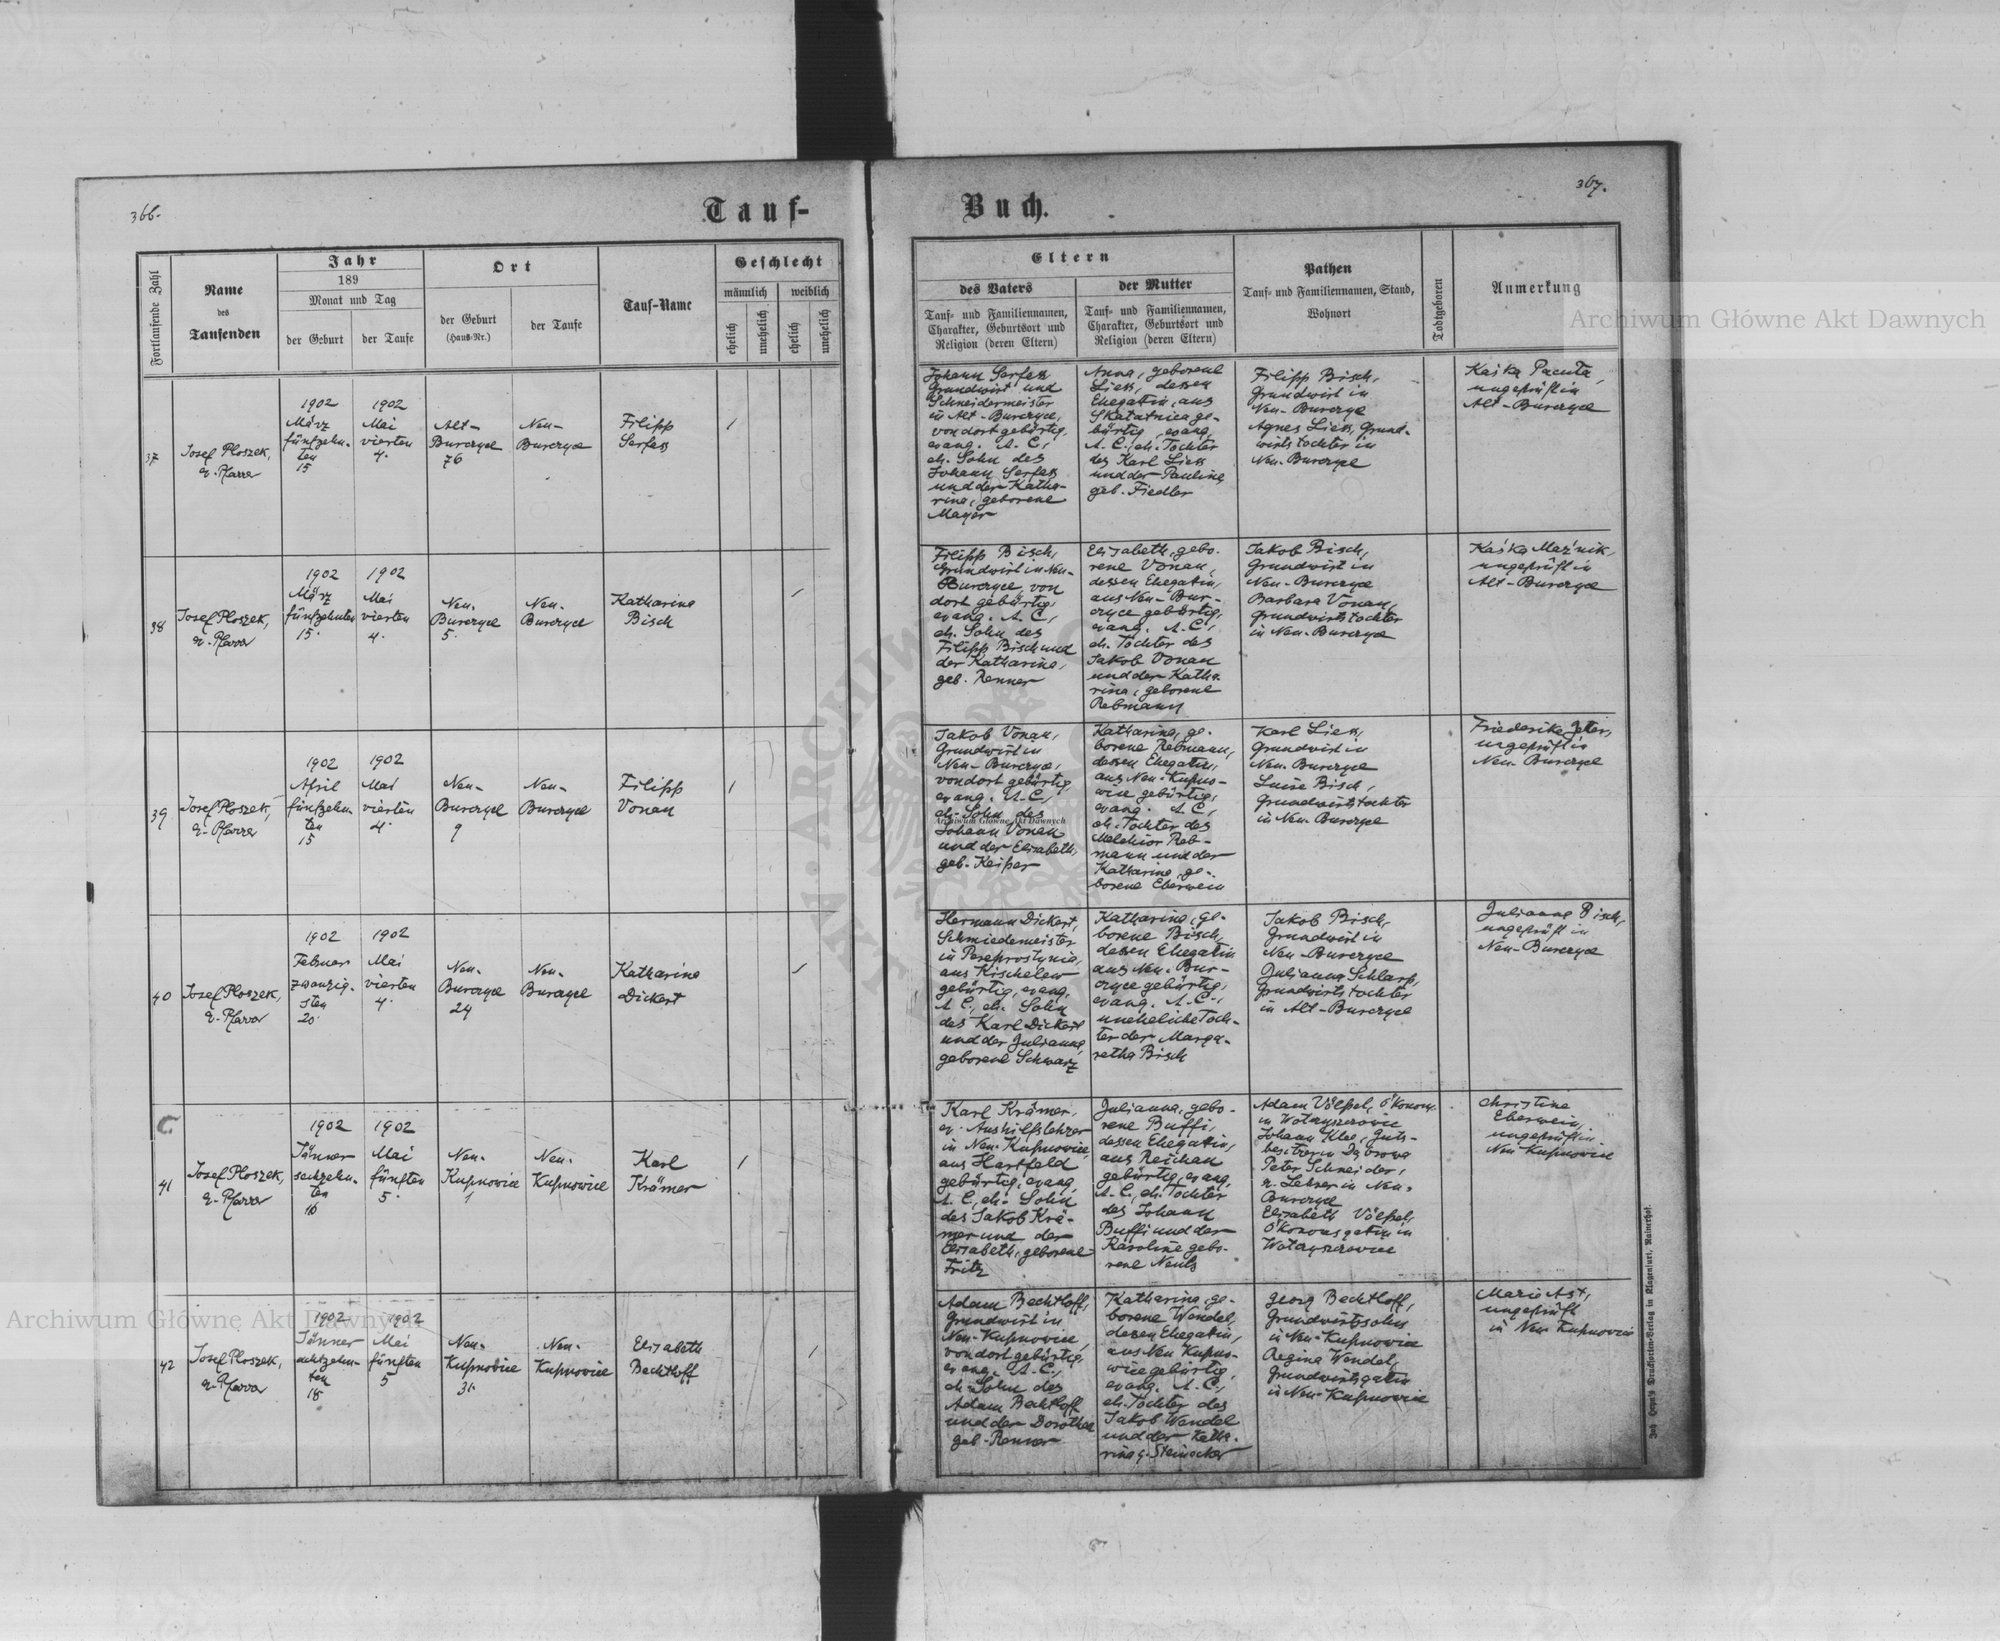 366.
Tauf-
Fortlaufende Zahl
Name
des
Taufenden
Jahr
189
Monat und Tag
der Geburt
der Taufe
Ort
der Geburt
(Haus-Nr.)
der Taufe
Tauf-Name
Geschlecht
männlich
weiblich
ehelich
unehelich
ehelich
unehelich
37
Josef Ploszek,
e. Pfarrer
1902
März
fünfzehn-
ten
15
1902
Mai
vierten
4.
Alt-
Burczyce
76
Neu-
Burczyce
Filipp
Serfass
1
38
Josef Ploszek,
e. Pfarrer
1902
März
fünfzehnten
15.
1902
Mai
vierten
4.
Neu-
Burczyce
5.
Neu-
Burczyce
Katharina
Bisch
39
Josef Ploszek,
e. Pfarrer
1902
April
fünfzehn-
ten
15
1902
Mai
vierten
4.
Neu-
Burczyce
9
Neu-
Burczyce
Filipp
Vonau
1
40
Josef Ploszek,
e. Pfarrer
1902
Februar
zwanzig-
sten
20.
1902
Mai
vierten
4.
Neu-
Burczyce
24
Neu-
Burczyce
Katharina
Dickert
C
41
Josef Ploszek,
e. Pfarrer
1902
Jänner
sechzehn-
ten
16
1902
Mai
fünften
5.
Neu-
Kupnowice
1
Neu-
Kupnowice
Karl
Krämer
1
42
Josef Ploszek,
e. Pfarrer
1902
Jänner
achtzehn-
ten
18
1902
Mai
fünften
5
Neu-
Kupnowice
31.
Neu-
Kupnowice
Elisabeth
Bechtloff
367.
Buch.
Eltern
des Vaters
Tauf- und Familiennamen,
Charakter, Geburtsort und
Religion (deren Eltern)
der Mutter
Tauf- und Familiennamen,
Charakter, Geburtsort und
Religion (deren Eltern)
Pathen
Tauf- und Familiennamen, Stand,
Wohnort
Todtgeboren
Anmerkung
Johann Serfass
Grundwirt und
Schneidermeister
in Alt-Burczyce,
von dort gebürtig,
evang. A. C.,
eh. Sohn des
Johann Serfass
und der Katha-
rina, geborene
Mayer
Anna, geborene
Liess, dessen
Ehegatin, aus
Skatatnica ge-
bürtig, evang.
A. C., eh. Tochter
des Karl Liess
und der Paulina
geb. Fiedler
Filipp Bisch,
Grundwirt in
Neu-Burczyce
Agnes Liess, Grund-
wirtstochter in
Neu-Burczyce
Kaśka Pacuta,
ungeprüft in
Alt-Burczyce
Filipp Bisch,
Grundwirt in Neu-
Burczyce, von
dort gebürtig,
evang. A. C.,
eh. Sohn des
Filipp Bisch und
der Katharina,
geb. Renner
Elisabeth, gebo-
rene Vonau,
dessen Ehegatin,
aus Neu-Bur-
czyce gebürtig,
evang. A. C.,
eh. Tochter des
Jakob Vonau
und der Katha-
rina, geborene
Rebmann
Jakob Bisch,
Grundwirt in
Neu-Burczyce
Barbara Vonau,
Grundwirtstochter
in Neu-Burczyce
Kaśka Maźnik,
ungeprüft in
Alt-Burczyce
Jakob Vonau,
Grundwirt in
Neu-Burczyce,
von dort gebürtig,
evang. A. C.,
eh. Sohn des
Johann Vonau
und der Elisabeth,
geb. Keiper
Katharina, ge-
borene Rebmann,
dessen Ehegatin,
aus Neu-Kupno-
wice gebürtig,
evang. A. C.,
eh. Tochter des
Melchior Reb-
mann und der
Katharina, ge-
borene Eberwein
Karl Liess,
Grundwirt in
Neu-Burczyce
Luise Bisch,
Grundwirtstochter
in Neu-Burczyce
Friederike
ungeprüft in
Neu-Burczyce
Hermann Dickert,
Schmiedemeister
in Pereprostynia,
aus Kischelew
gebürtig, evang.
A. C., eh. Sohn
des Karl Dickert
und der Julianna,
geborene Schwarz
Katharina, ge-
borene Bisch,
dessen Ehegatin
aus Neu-Bur-
czyce gebürtig,
evang. A. C.,
uneheliche Toch-
ter der Marga-
retha Bisch
Jakob Bisch,
Grundwirt in
Neu-Burczyce
Julianna Schlarp,
Grundwirtstochter
in Alt-Burczyce
Julianna Bisch,
ungeprüft in
Neu-Burczyce
Karl Krämer,
ev. Aushilfslehrer
in Neu-Kupnowice,
aus Hartfeld
gebürtig, evang.
A. C., eh. Sohn
des Jakob Krä-
mer und der
Elisabeth, geborene
Fritz
Julianna, gebo-
rene Buffi,
dessen Ehegatin,
aus Reichau
gebürtig, evang.
A. C., eh. Tochter
des Johann
Buffi und der
Karoline gebo-
rene Neuls
Adam Völpel, Ökonom
in Wolczyszczowice
Johann Klee, Guts-
besitzer in Dąbrowa
Peter Schneider,
e. Lehrer in Neu-
Burczyce
Elisabeth Völpel,
Ökonomsgatin in
Wolczyszczowice
Christina
Eberwein,
ungeprüft in
Neu Kupnowice
Adam Bechtloff,
Grundwirt in
Neu-Kupnowice,
von dort gebürtig,
evang. A. C.,
eh. Sohn des
Adam Bechtloff
und der Dorothea
geb. Renner
Katharina, ge-
borene Wendel,
dessen Ehegatin,
aus Neu Kupno-
wice gebürtig,
evang. A. C.,
eh. Tochter des
Jakob Wendel
und der Katha-
rina g. Steinecker
Georg Bechtloff,
Grundwirtssohn
in Neu-Kupnowice
Regina Wendel,
Grundwirtsgatin
in Neu-Kupnowice
Marie Ast,
ungeprüft
in Neu Kupnowice
Archiwum Główne Akt Dawnych
Archiwum Główne Akt Dawnych
Archiwum Główne Akt Dawnych